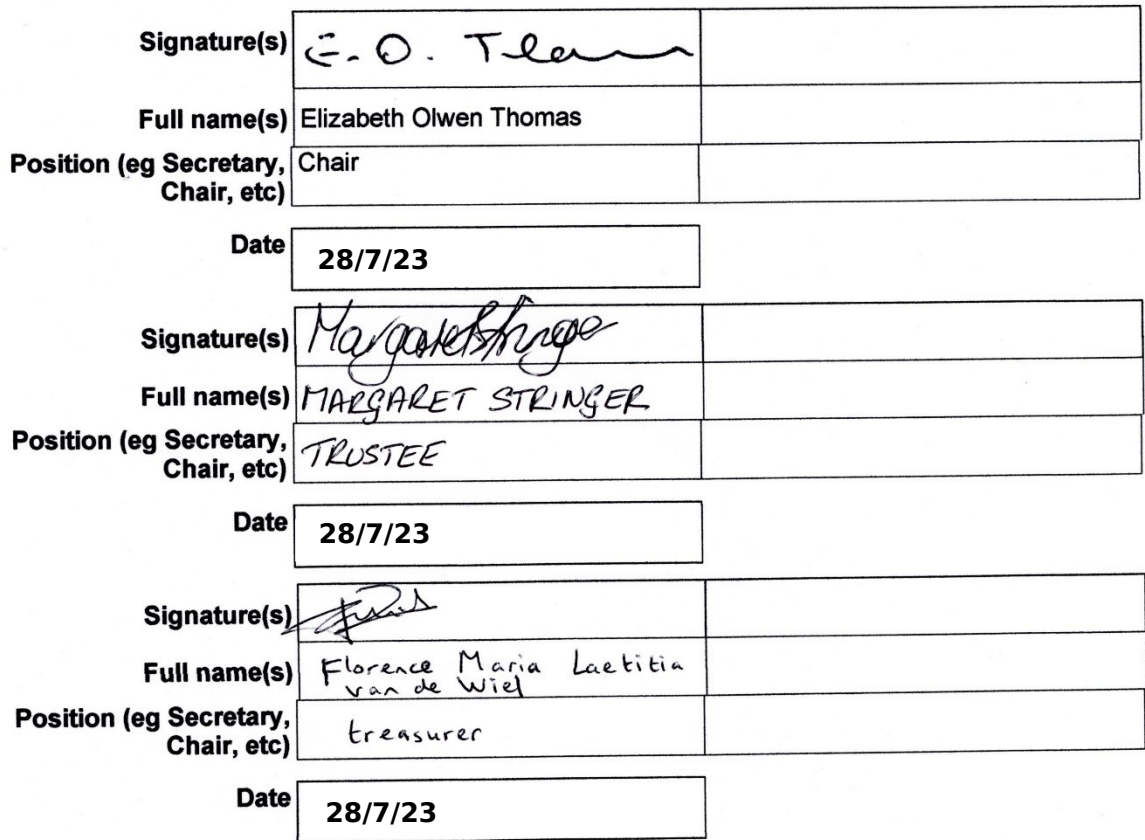 Signature(s) E. O. Thomas
Full name(s) Elizabeth Olwen Thomas
Position (eg Secretary, Chair
Chair, etc)
Date 28/7/23
Signature(s) Margaret Stringer
Full name(s) MARGARET STRINGER
Position (eg Secretary, TRUSTEE
Chair, etc)
Date 28/7/23
Signature(s)
Full name(s) Florence Maria Laetitia
van de Wiel
Position (eg Secretary, treasurer
Chair, etc)
Date 28/7/23